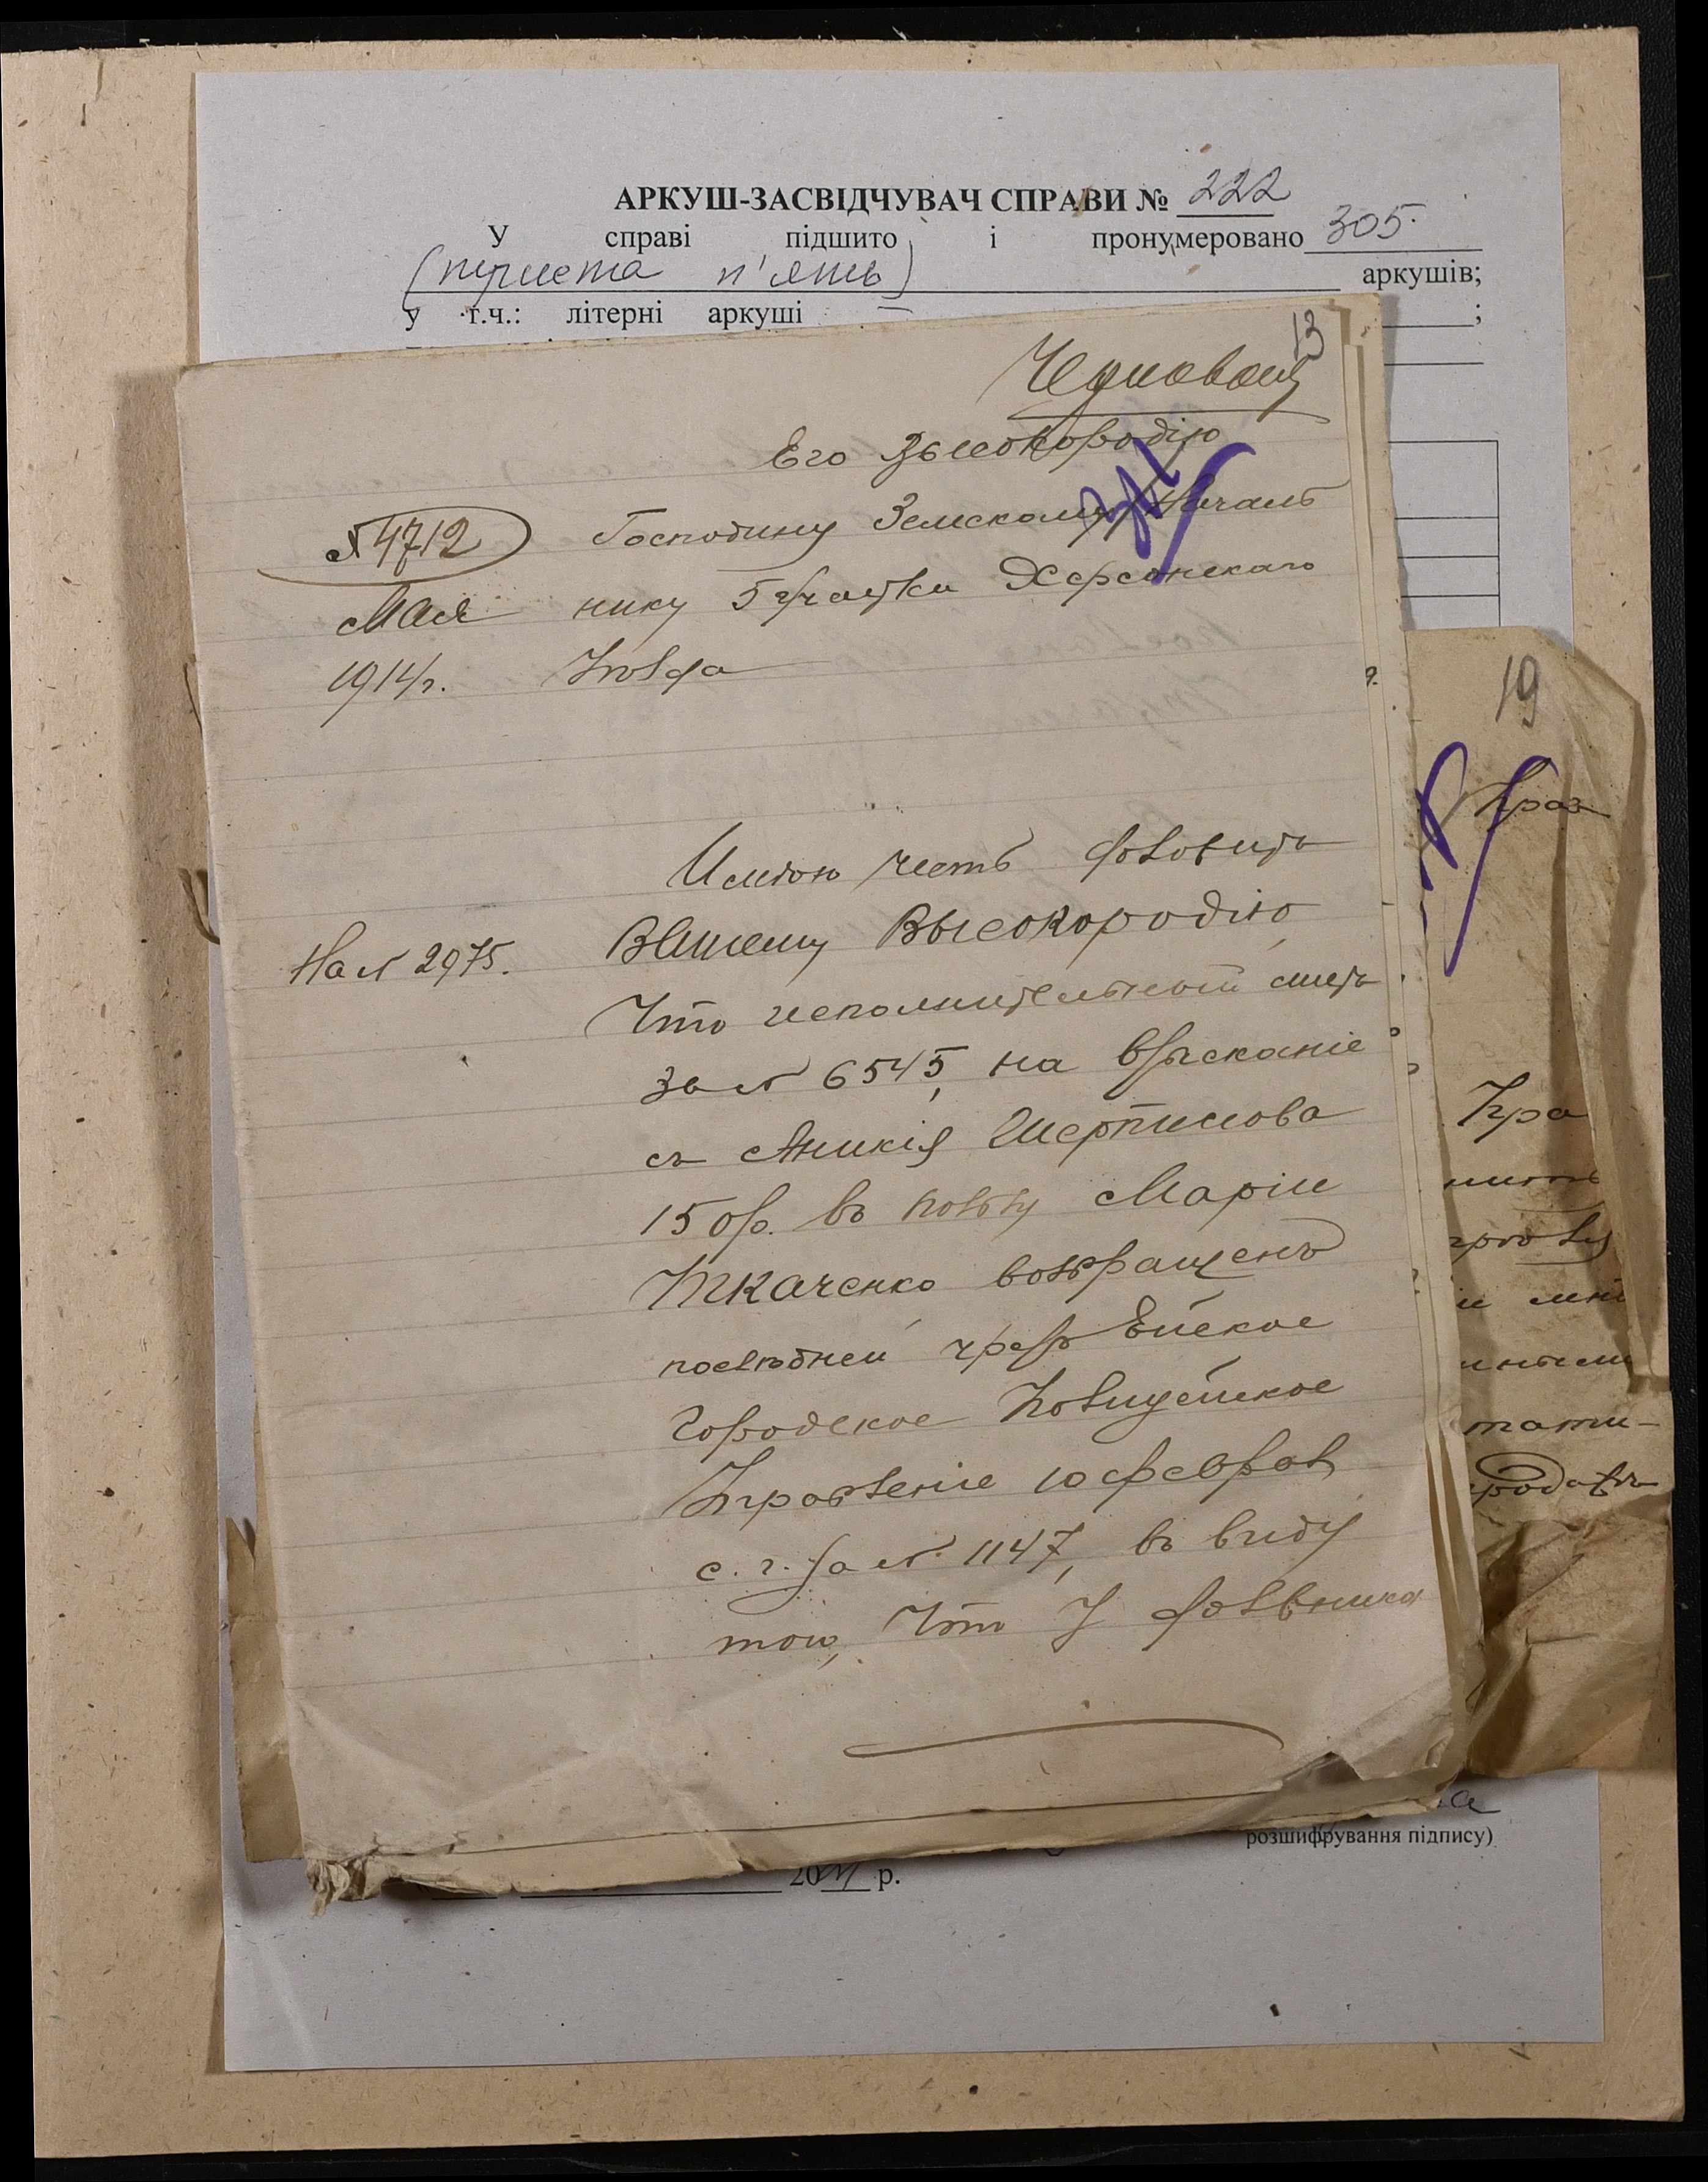 АРКУШ-ЗАСВІДЧУВАЧ СПРАВИ № 222
У справі підшито і пронумеровано 305
(триста п'ять) аркушів;
у т.ч.: літерні аркуші ;
13
Черновой
Его Высокородію
№ 4712 Господину Земскому Началь
Мая нику 5 участка Херсонскаго
1914 г. Уѣзда
19
Имѣю честь доложить
На № 2975. Вашему Высокородію
Что исполнительный листъ
за № 6545, на взысканіе
съ Аникія Шертилова
150 р. въ пользу Маріи
Ткаченко возвращенъ
послѣдней чрезъ Ейское
Городское Полицейское
Управленіе 10 февраля
с. г. за № 1147, въ виду
того, Что у должника
розшифрування підпису)
20 р.